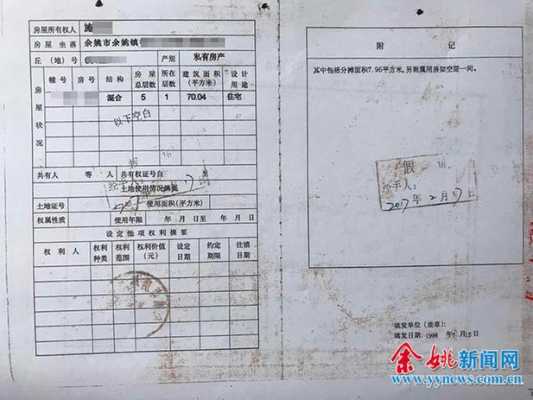 房屋所有权人 施
房屋坐落 余姚市余姚镇
丘（地）号 产别 私有房产
幢号 房号 结构 房屋总层数 所在层数 建筑面积（平方米） 设计用途
房屋状况
混合 5 1 70.04 住宅
以下空白
共有人 等 人 共有权证号自 至
土地使用情况摘要
土地证号 使用面积（平方米）
权属性质 使用年限 年 月 日至 年 月 日
设定他项权利摘要
权利人 权利种类 权利范围 权利价值（元） 设定日期 约定期限 注销日期
附 记
其中包括分摊面积7.96平方米，另附属用房架空层一间。
假
经手人：
2017年2月17日
填发单位（盖章）：
填发日期：1998年 月18日
余姚新闻网
www.yynews.com.cn